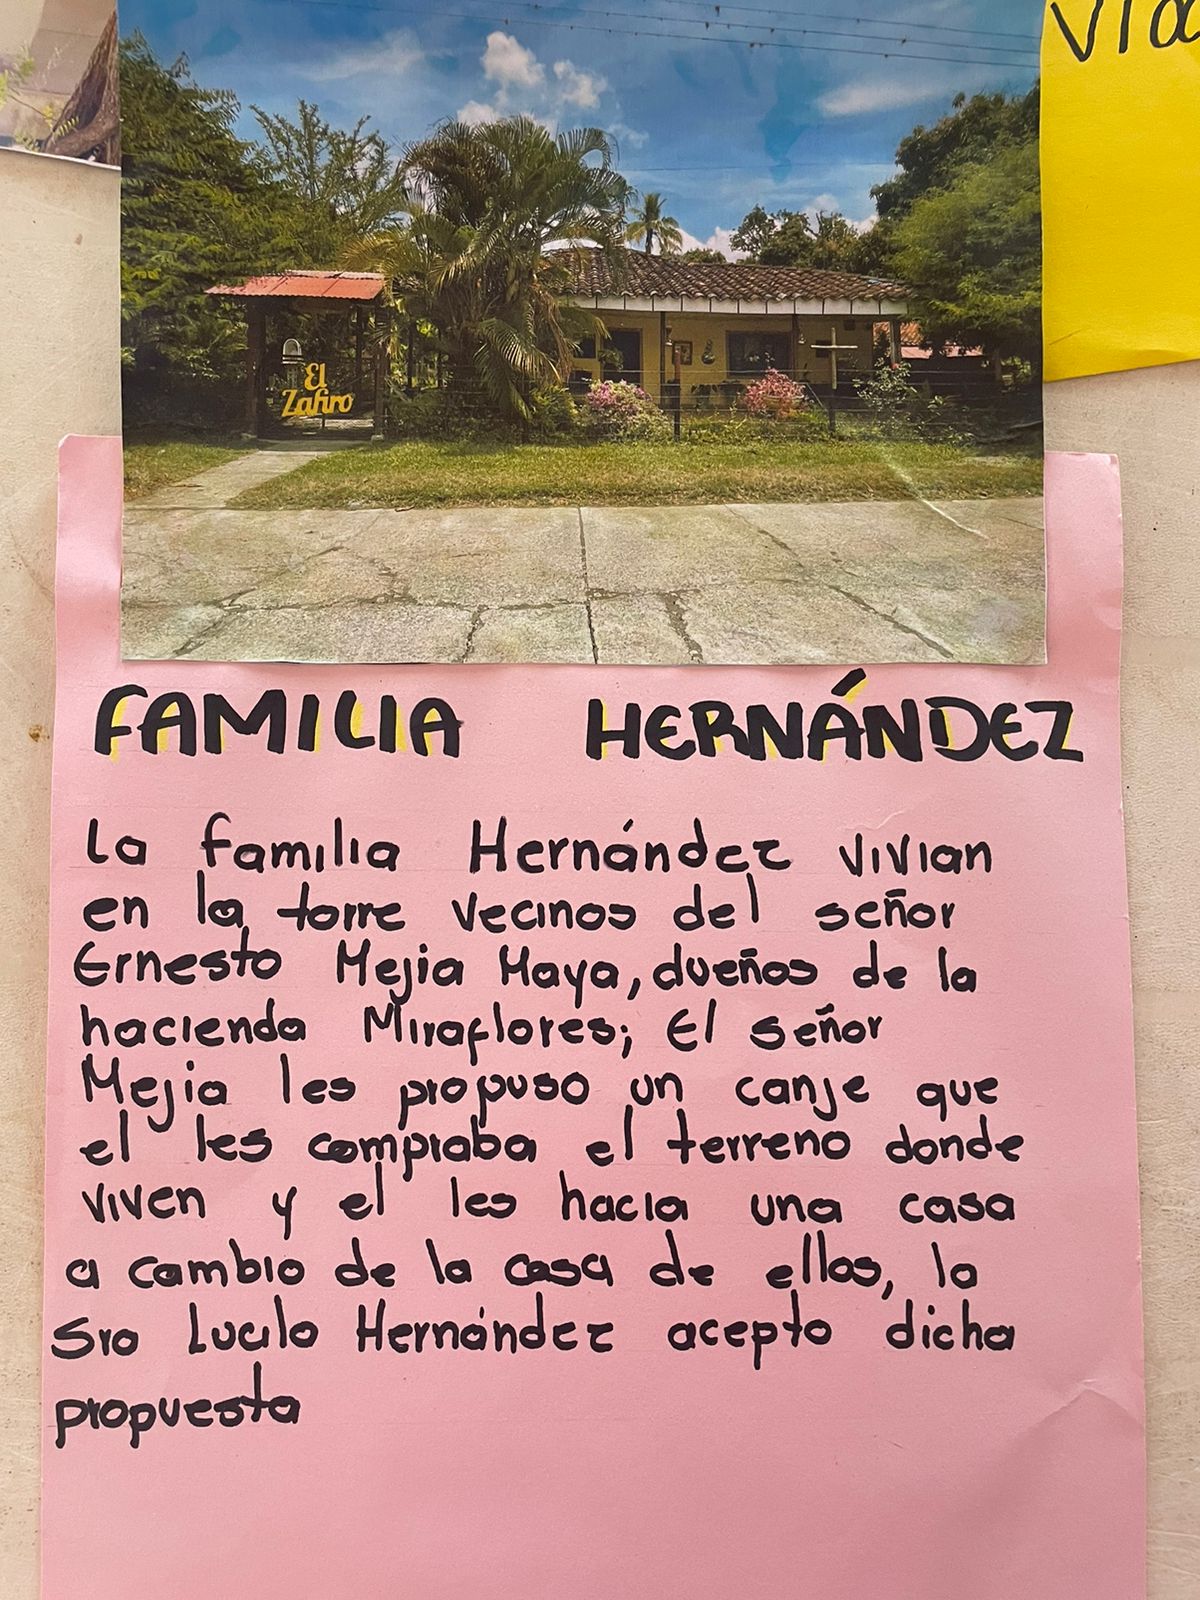 Via
El
Zafiro
FAMILIA HERNÁNDEZ
La familia Hernández vivian
en la torre vecinos del señor
Ernesto Mejia Maya, dueños de la
hacienda Miraflores; El señor
Mejia les propuso un canje que
el les compraba el terreno donde
viven y el les hacia una casa
a cambio de la casa de ellos, la
Sra Lucila Hernández acepto dicha
propuesta